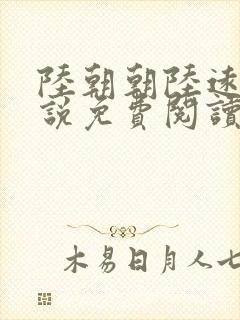 陸朝朝陸遠
說免費閱讀
木易日月人七